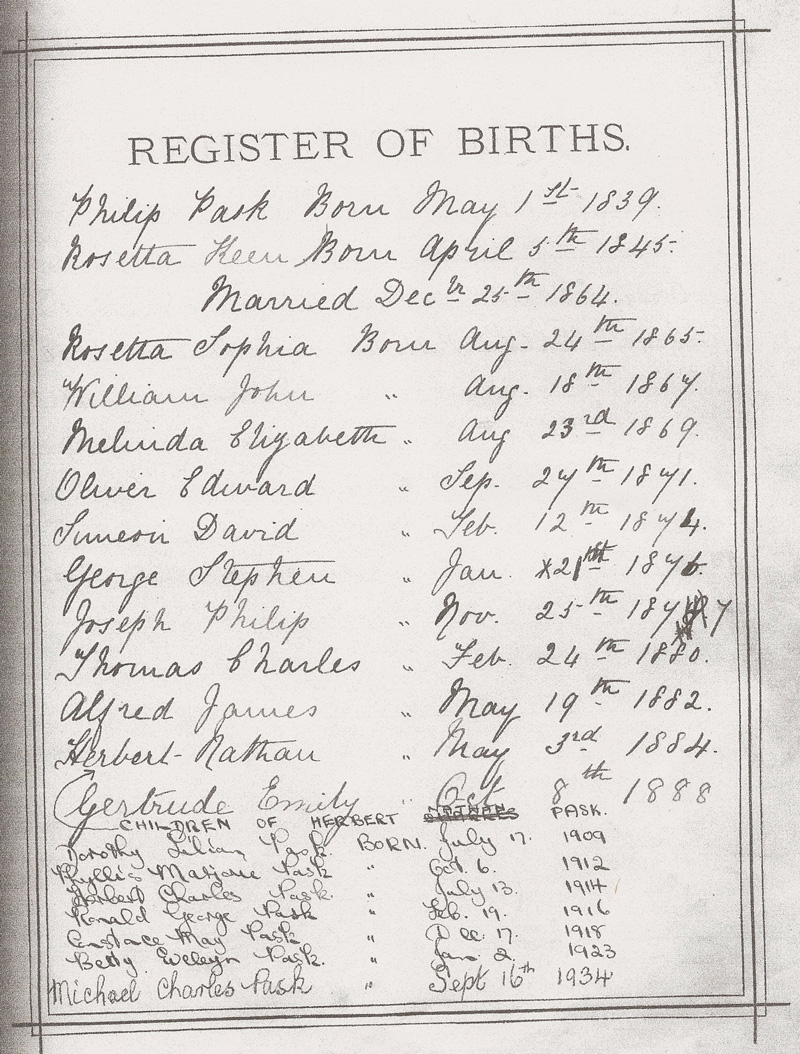 REGISTER OF BIRTHS.
Philip Pask Born May 1st 1839.
Rosetta Keen Born April 5th 1845.
Married Decbr 25th 1864.
Rosetta Sophia Born Aug. 24th 1865.
William John " Aug. 18th 1867.
Melinda Elizabeth " Aug 23rd 1869.
Oliver Edward " Sep. 27th 1871.
Simeon David " Feb. 12th 1874.
George Stephen " Jan. 21st 1876.
Joseph Philip " Nov. 25th 187 7
Thomas Charles " Feb. 24th 1880.
Alfred James " May 19th 1882.
Herbert Nathan " May 3rd 1884.
Gertrude Emily " Oct 8th 1888
CHILDREN OF HERBERT NATHAN PASK.
Dorothy Lilian Pask BORN. July 17. 1909
Phyllis Marjorie Pask " Oct. 6. 1912
Herbert Charles Pask. " July 13. 1914
Ronald George Pask " Feb. 19. 1916
Constace May Pask " Dec. 17. 1918
Betty Evelyn Pask. " Jan. 2. 1923
Michael Charles Pask " Sept 16th 1934